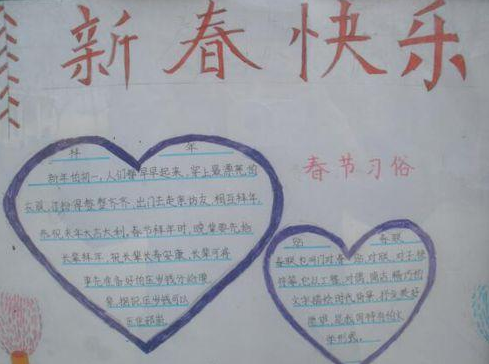 新春快乐
春节习俗
拜 年
新年的初一,人们都早早起来,穿上最漂亮的
衣服,打扮得整整齐齐,出门去走亲访友,相互拜年,
恭祝来年大吉大利,春节拜年时,晚辈要先给
长辈拜年,祝长辈长寿安康,长辈可将
事先准备好的压岁钱分给晚
辈,据说压岁钱可以
压住邪祟
贴 春联
春联也叫门对、春贴、对联、对子、桃
符等,它以工整、对偶、简洁、精巧的
文字描绘时代背景,抒发美好
愿望,是我国特有的文
学形式。